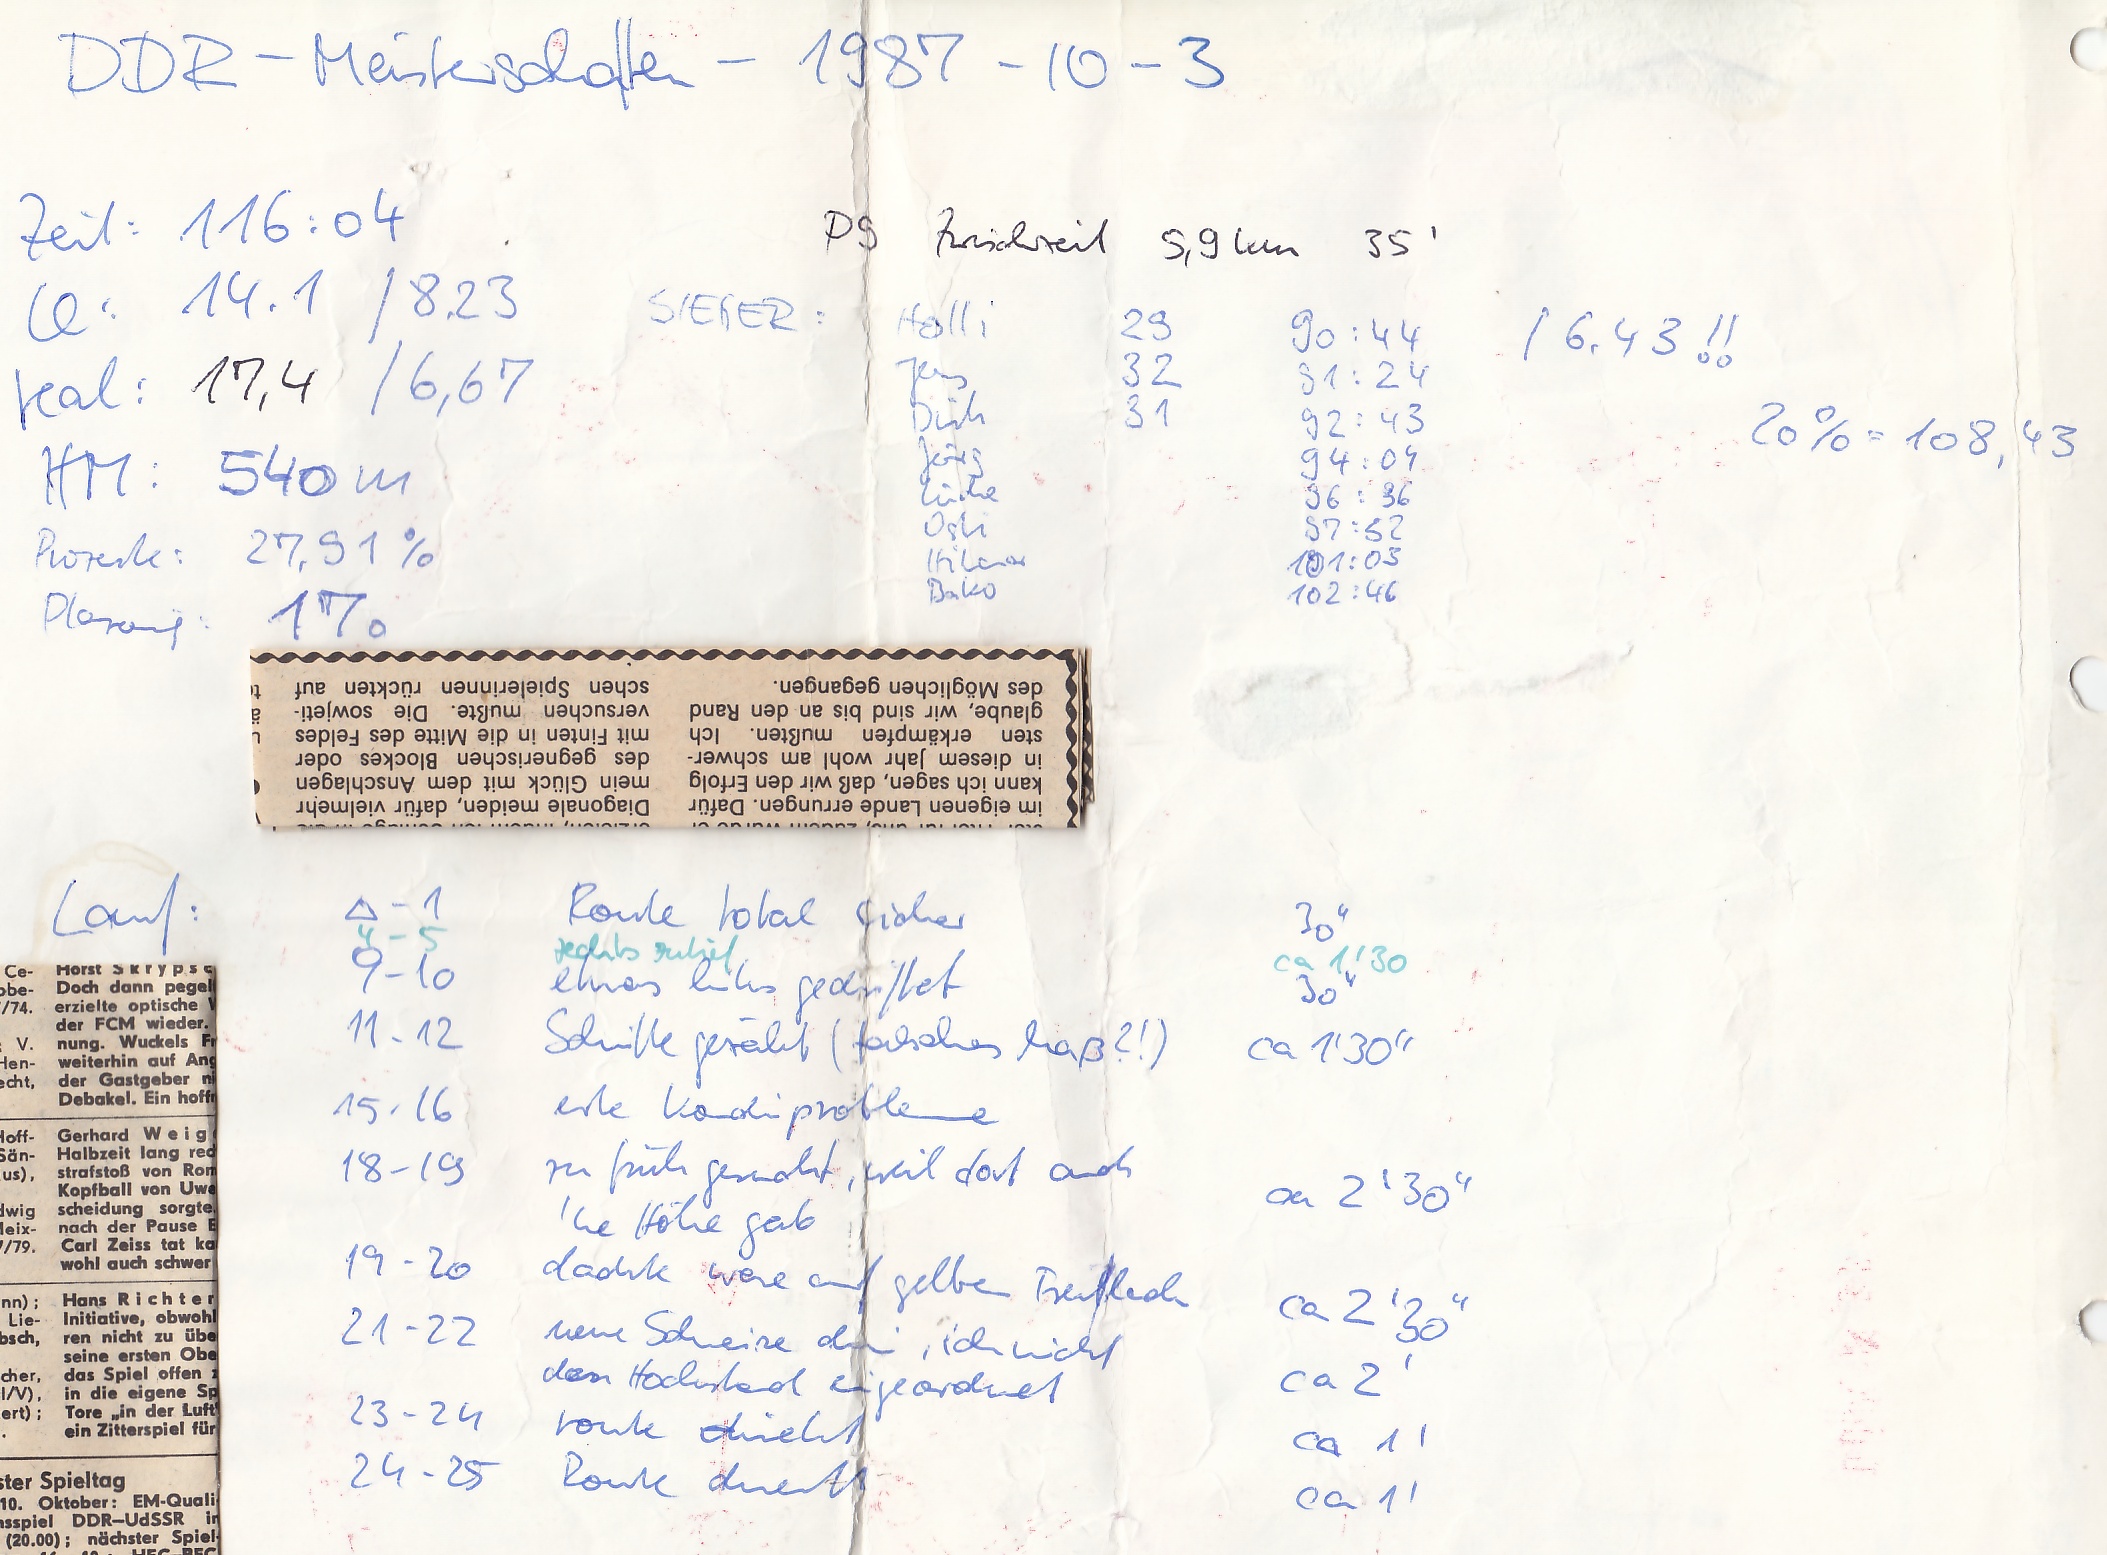 DDR - Meisterschaften - 1987 - 10 - 3
Zeit: 116:04
P9 Zwischzeit 5,9 km 35'
LL: 14.1 / 8.23
SIEGER: Holli 29 90:44 / 6.43 !!
real: 17,4 / 6,67
Jens 32 91:24
Dirk 31 92:43
20% = 108,43
HM: 540 m
Jörg 94:04
96:36
Prozente: 27,91%
Oski 97:52
Hilmar 101:05
Bako 102:46
Plazierung: 17.
des Möglichen gegangen.
glaube, wir sind bis an den Rand
sten erkämpfen mußten. Ich
in diesem Jahr wohl am schwer-
kann ich sagen, daß wir den Erfolg
im eigenen Lande errungen. Dafür
schen Spielerinnen rückten auf
versuchen mußte. Die sowjeti-
mit Finten in die Mitte des Feldes
des gegnerischen Blockes oder
mein Glück mit dem Anschlagen
Diagonale meiden, dafür vielmehr
Lauf: △ - 1 Route total sicher 30"
4 - 5 rechts zu tief ca 1'30
9 - 10 etwas links gedriftet 30"
11 - 12 Schritte gezählt (falsches Maß?!) ca 1'30"
15 - 16 erste Kondiprobleme
18 - 19 zu früh gesucht, weil dort auch
'ne Höhe gab ca 2'30"
19 - 20 dachte wäre auf gelben Freifläche ca 2'30"
21 - 22 neue Schneise drin, ich nicht
den Hochstand eingeordnet ca 2'
23 - 24 route direkt ca 1'
24 - 25 Route direkt ca 1'
Ce- Horst Skryps
obe- Doch dann pegel
/74. erzielte optische
der FCM wieder.
V. nung. Wuckels Fr
Hen- weiterhin auf Ang
echt, der Gastgeber ni
Debakel. Ein hoffn
Hoff- Gerhard Weig
Sän- Halbzeit lang red
us), strafstoß von Rom
Kopfball von Uwe
dwig scheidung sorgte.
Meix- nach der Pause E
/79. Carl Zeiss tat ka
wohl auch schwer
nn); Hans Richter
Lie- Initiative, obwohl
bsch, ren nicht zu übe
seine ersten Obe
cher, das Spiel offen
l/V), in die eigene Sp
ert); Tore „in der Luft
. ein Zitterspiel für
ster Spieltag
10. Oktober: EM-Quali
nsspiel DDR–UdSSR in
(20.00); nächster Spiel-